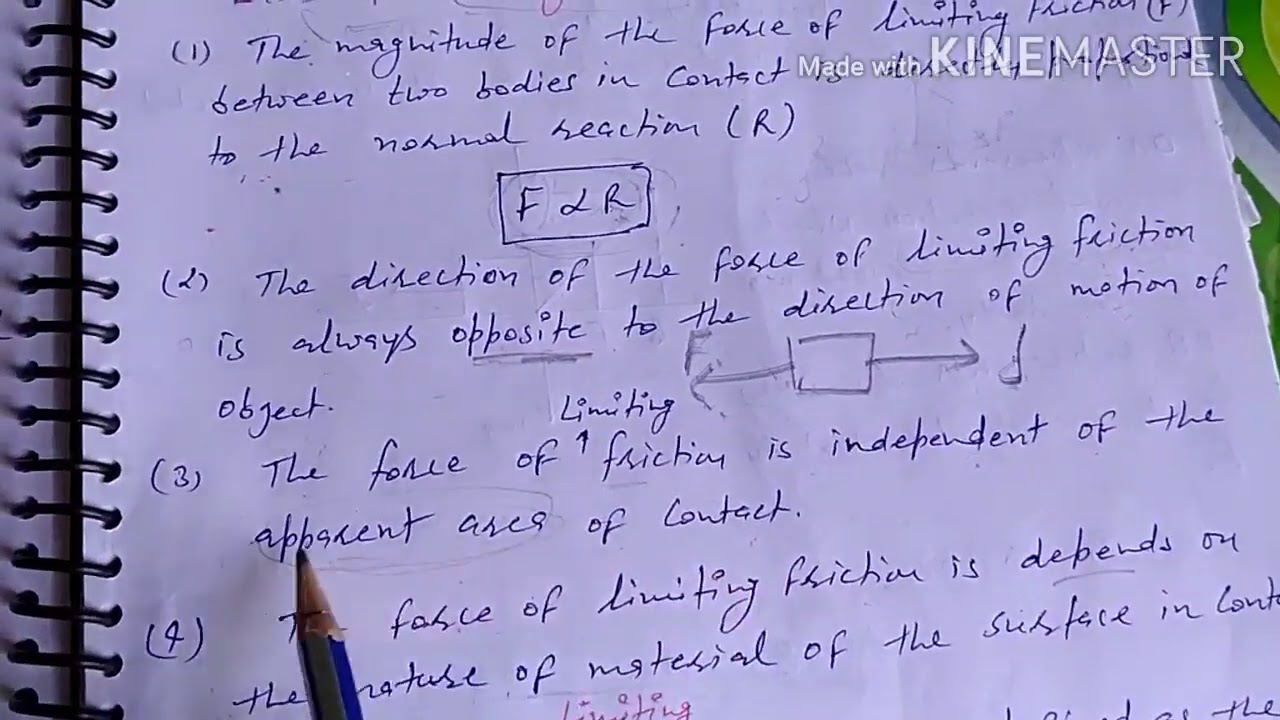 (1) The magnitude of the force of limiting friction (F)
Made with KINEMASTER
between two bodies in contact is directly
to the normal reaction (R)
F α R
(2) The direction of the force of limiting friction
is always opposite to the direction of motion of
F
d
object.
Limiting
(3) The force of ↑ friction is independent of the
apparent area of contact.
(4) force of limiting friction is depends on
the nature of material of the surface in
limiting
as the